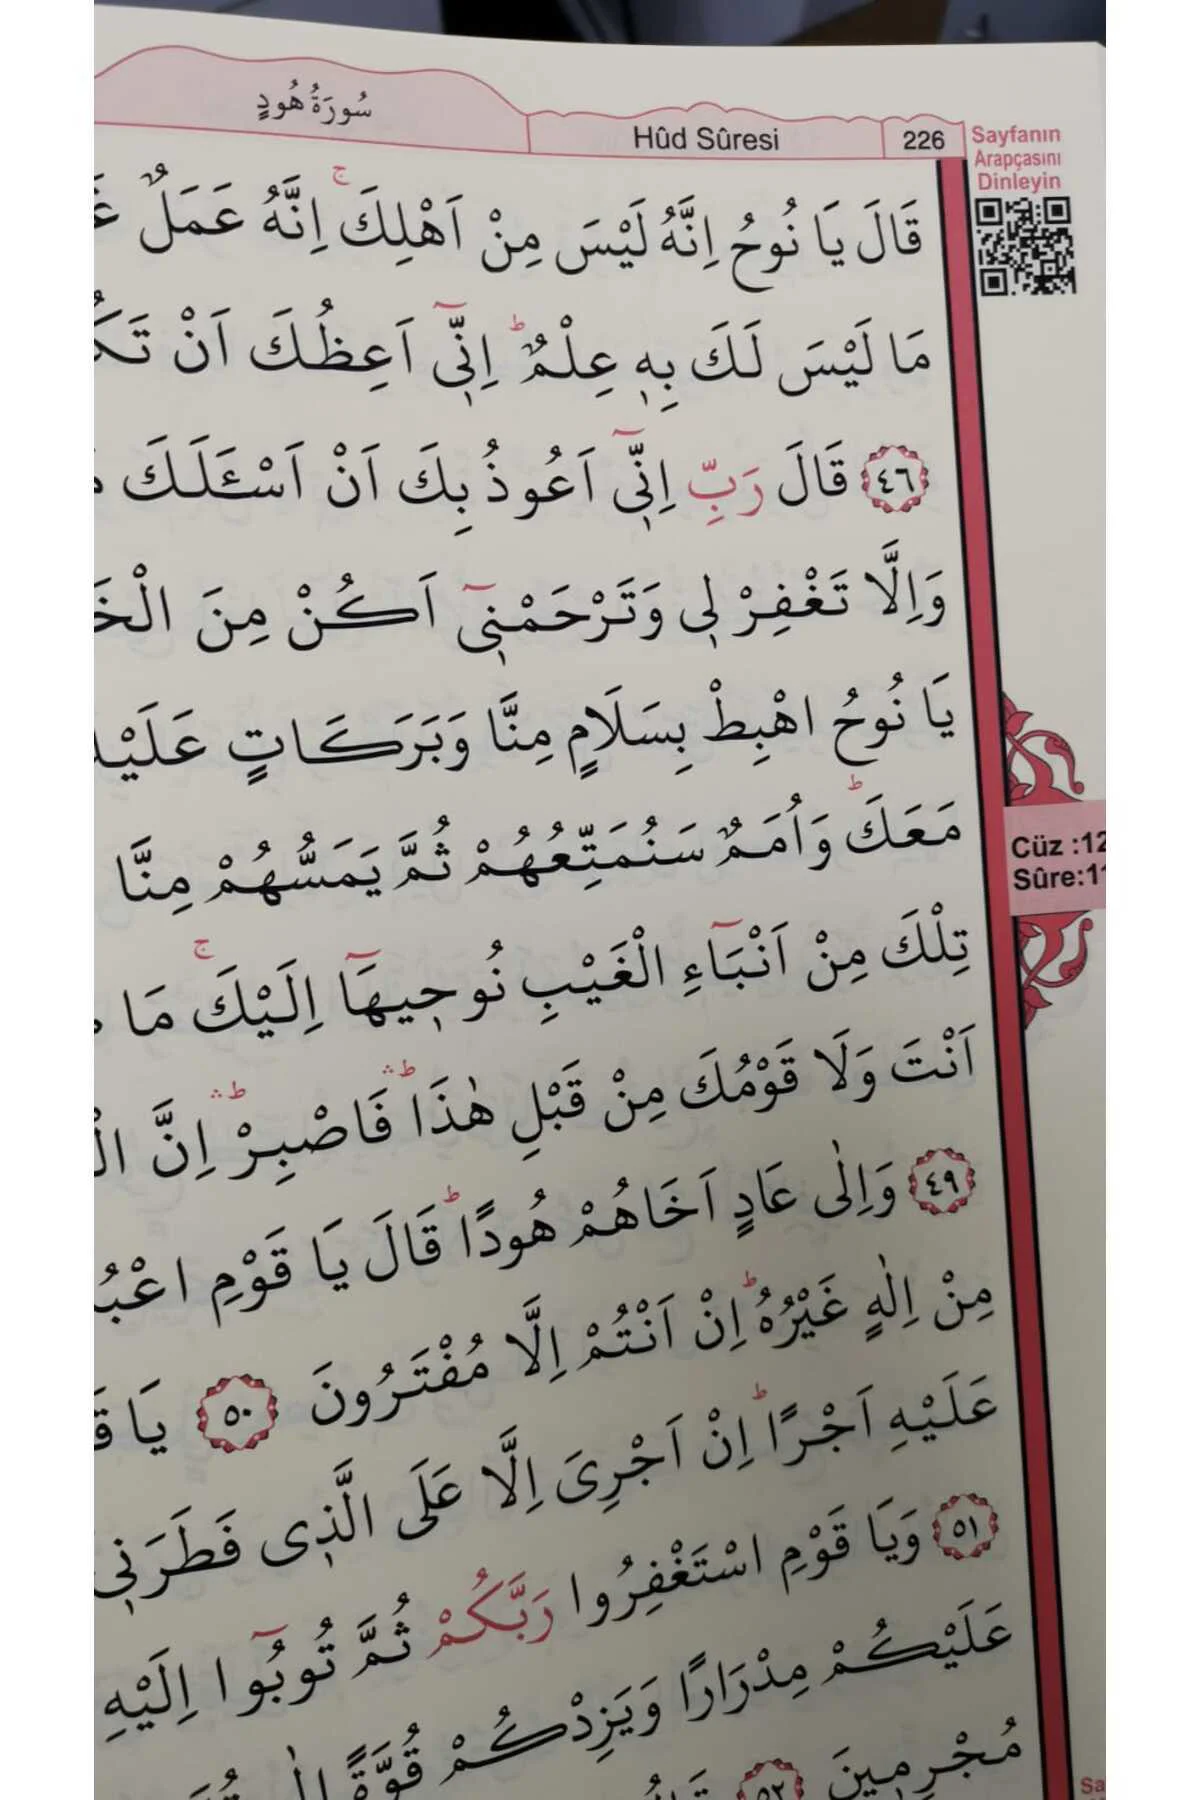 سُورَةُ هُودٍ
Hûd Sûresi
226
Sayfanın
Arapçasını
Dinleyin
قَالَ يَا نُوحُ اِنَّهُ لَيْسَ مِنْ اَهْلِكَۚ اِنَّهُ عَمَلٌ
مَا لَيْسَ لَكَ بِهٖ عِلْمٌؕ اِنّٖٓي اَعِظُكَ اَنْ
﴿٤٦﴾ قَالَ رَبِّ اِنّٖٓي اَعُوذُ بِكَ اَنْ اَسْـَٔلَكَ
وَاِلَّا تَغْفِرْ لٖي وَتَرْحَمْنٖٓي اَكُنْ مِنَ
يَا نُوحُ اهْبِطْ بِسَلَامٍ مِنَّا وَبَرَكَاتٍ
مَعَكَؕ وَاُمَمٌ سَنُمَتِّعُهُمْ ثُمَّ يَمَسُّهُمْ مِنَّا
Cüz :12
Sûre:11
تِلْكَ مِنْ اَنْبَٓاءِ الْغَيْبِ نُوحٖيهَٓا اِلَيْكَۚ مَا
اَنْتَ وَلَا قَوْمُكَ مِنْ قَبْلِ هٰذَاؕۛ فَاصْبِرْؕۛ اِنَّ
﴿٤٩﴾ وَاِلٰى عَادٍ اَخَاهُمْ هُودًاؕ قَالَ يَا قَوْمِ
مِنْ اِلٰهٍ غَيْرُهُؕ اِنْ اَنْتُمْ اِلَّا مُفْتَرُونَ ﴿٥٠﴾ يَا
عَلَيْهِ اَجْرًاؕ اِنْ اَجْرِيَ اِلَّا عَلَى الَّذٖي فَطَرَنٖي
﴿٥١﴾ وَيَا قَوْمِ اسْتَغْفِرُوا رَبَّكُمْ ثُمَّ تُوبُٓوا اِلَيْهِ
عَلَيْكُمْ مِدْرَارًا وَيَزِدْكُمْ قُوَّةً
مُجْرِمٖينَ ﴿٥٢﴾